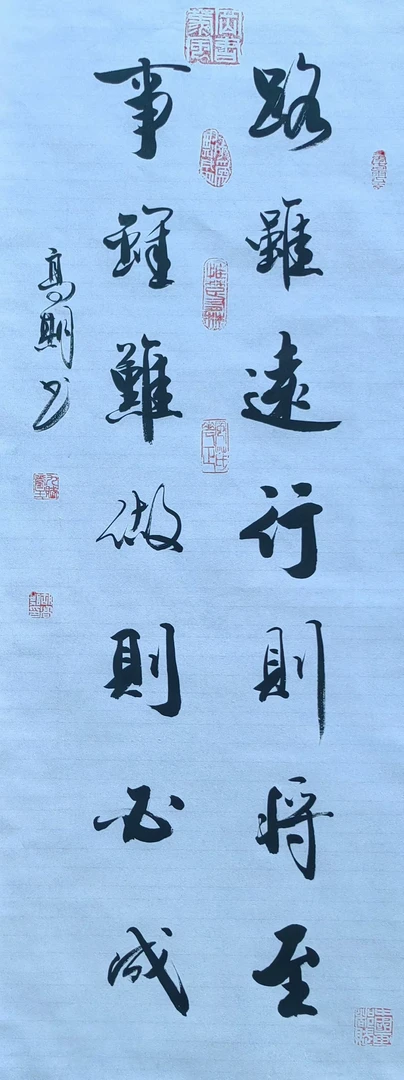 路雖遠行則將至
事雖難做則必成
高期书